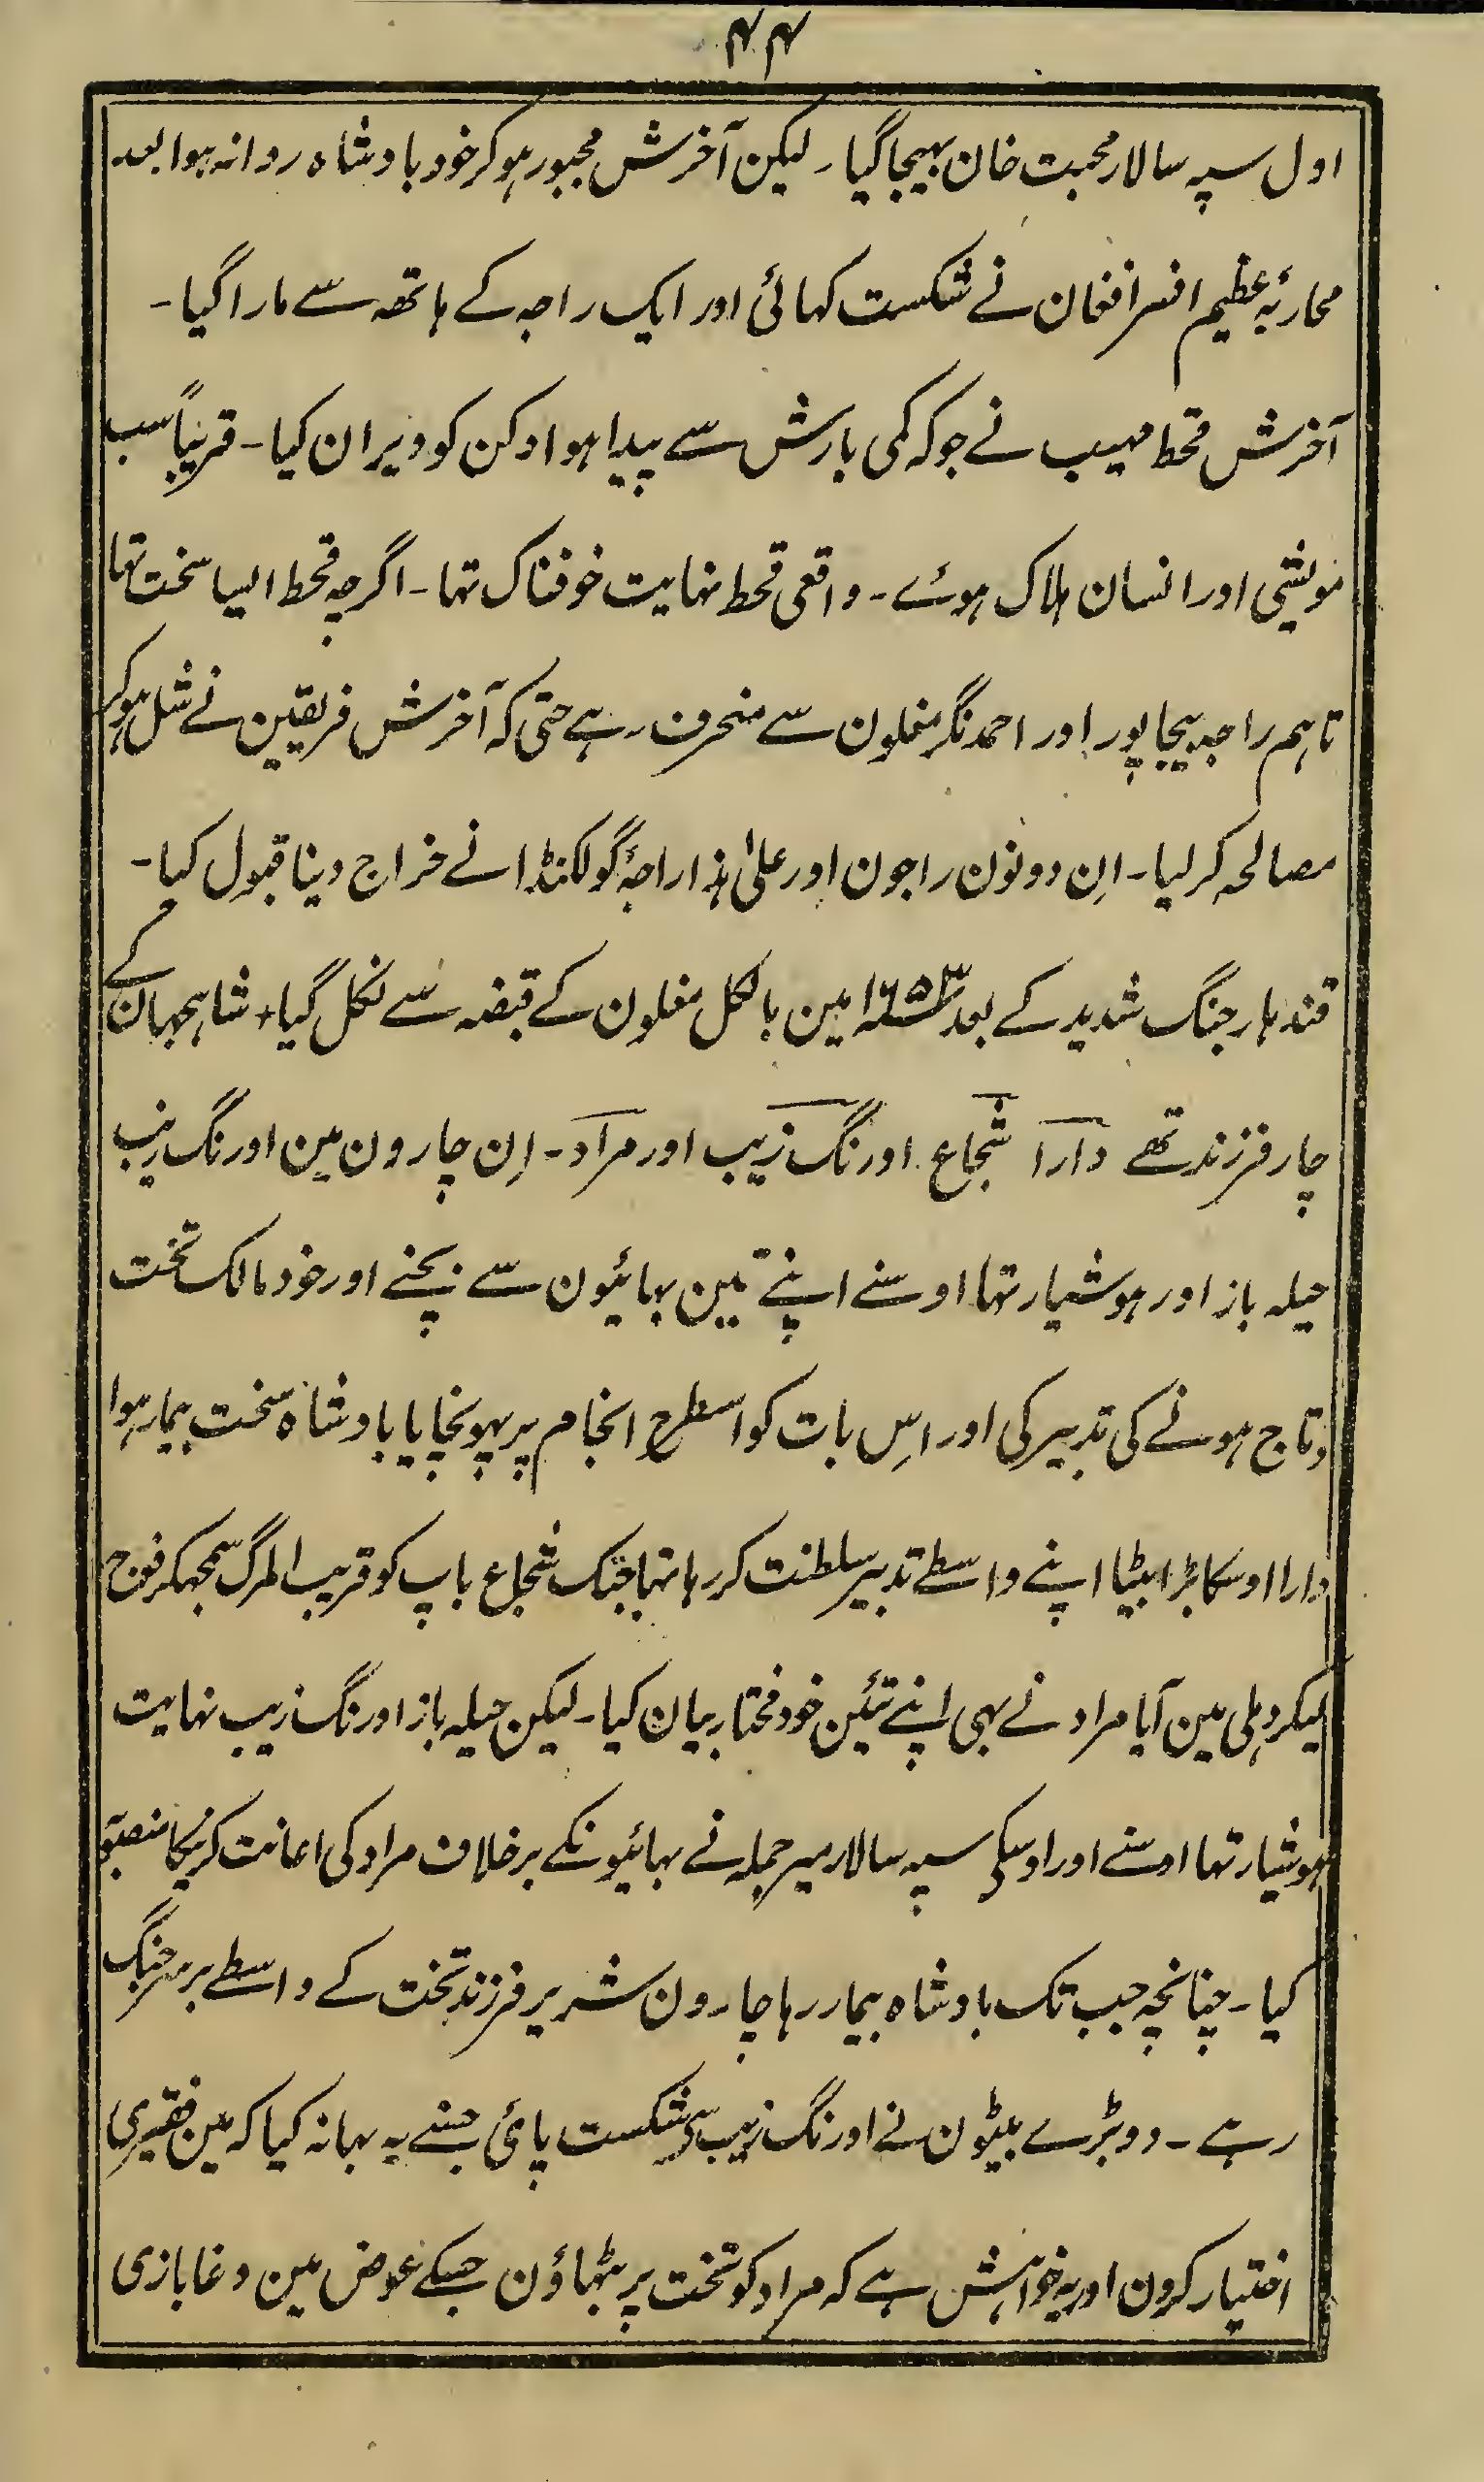 ۴۴
اول سپہ سالار محبت خان بہیجا گیا۔ لیکن آخرش مجبور ہو کر خود بادشاہ روانہ ہوا بعد
محاربۂ عظیم افسر افغان نے شکست کہائی اور ایک راجہ کے ہاتھہ سے مارا گیا۔
آخرش قحط مہیب نے جو کہ کمی بارش سے پیدا ہوا دکن کو ویران کیا۔ قریباً سب
مویشی اور انسان ہلاک ہوئے۔ واقعی قحط نہایت خوفناک تہا۔ اگرچہ قحط ایسا سخت تہا
تاہم راجہ بیجاپور اور احمد نگر مغلون سے منحرف رہے حتی کہ آخرش فریقین نے شل ہو کر
مصالحہ کر لیا۔ اِن دونون راجون اور علیٰ ہذا راجۂ گولکنڈا نے خراج دینا قبول کیا۔
قندہار جنگ شدید کے بعد ۱۶۵۳ مین بالکل مغلون کے قبضہ سے نکل گیا٭ شاہجہان کے
چار فرزند تھے دارا شجاع اورنگ زیب اور مراد۔ اِن چارون مین اورنگ زیب
حیلہ باز اور ہوشیار تہا اوسنے اپنے تین بہائیون سے بچنے اور خود مالک تخت
وتاج ہونے کی تدبیر کی اور اسِ بات کو اسطرح انجام پر پہونچایا بادشاہ سخت بیمار ہوا
دارا اوسکا بڑا بیٹیا اپنے واسطے تدبیر سلطنت کر رہا تہا جبتک شجاع باپ کو قریب المرگ سمجھکر فوج
لیکر دہلی مین آیا مراد نے بہی اپنے تئین خود مختار بیان کیا۔ لیکن حیلہ باز اورنگ زیب نہایت
ہوشیار تہا اوسنے اور اوسکے سپہ سالار میر جملہ نے بہائیونکے برخلاف مراد کی اعانت کرنیکا منصوبہ
کیا۔ چنانچہ جب تک بادشاہ بیمار رہا چارون شریر فرزند تخت کے واسطے برسر جنگ
رہے۔ دو بڑے بیٹون نے اورنگ زیب سے شکست پائی جسنے یہ بہانہ کیا کہ مین فقیری
اختیار کرون اور یہ خواہش ہے کہ مراد کو تخت پر بٹہاؤن جسکے عوض مین دغابازی